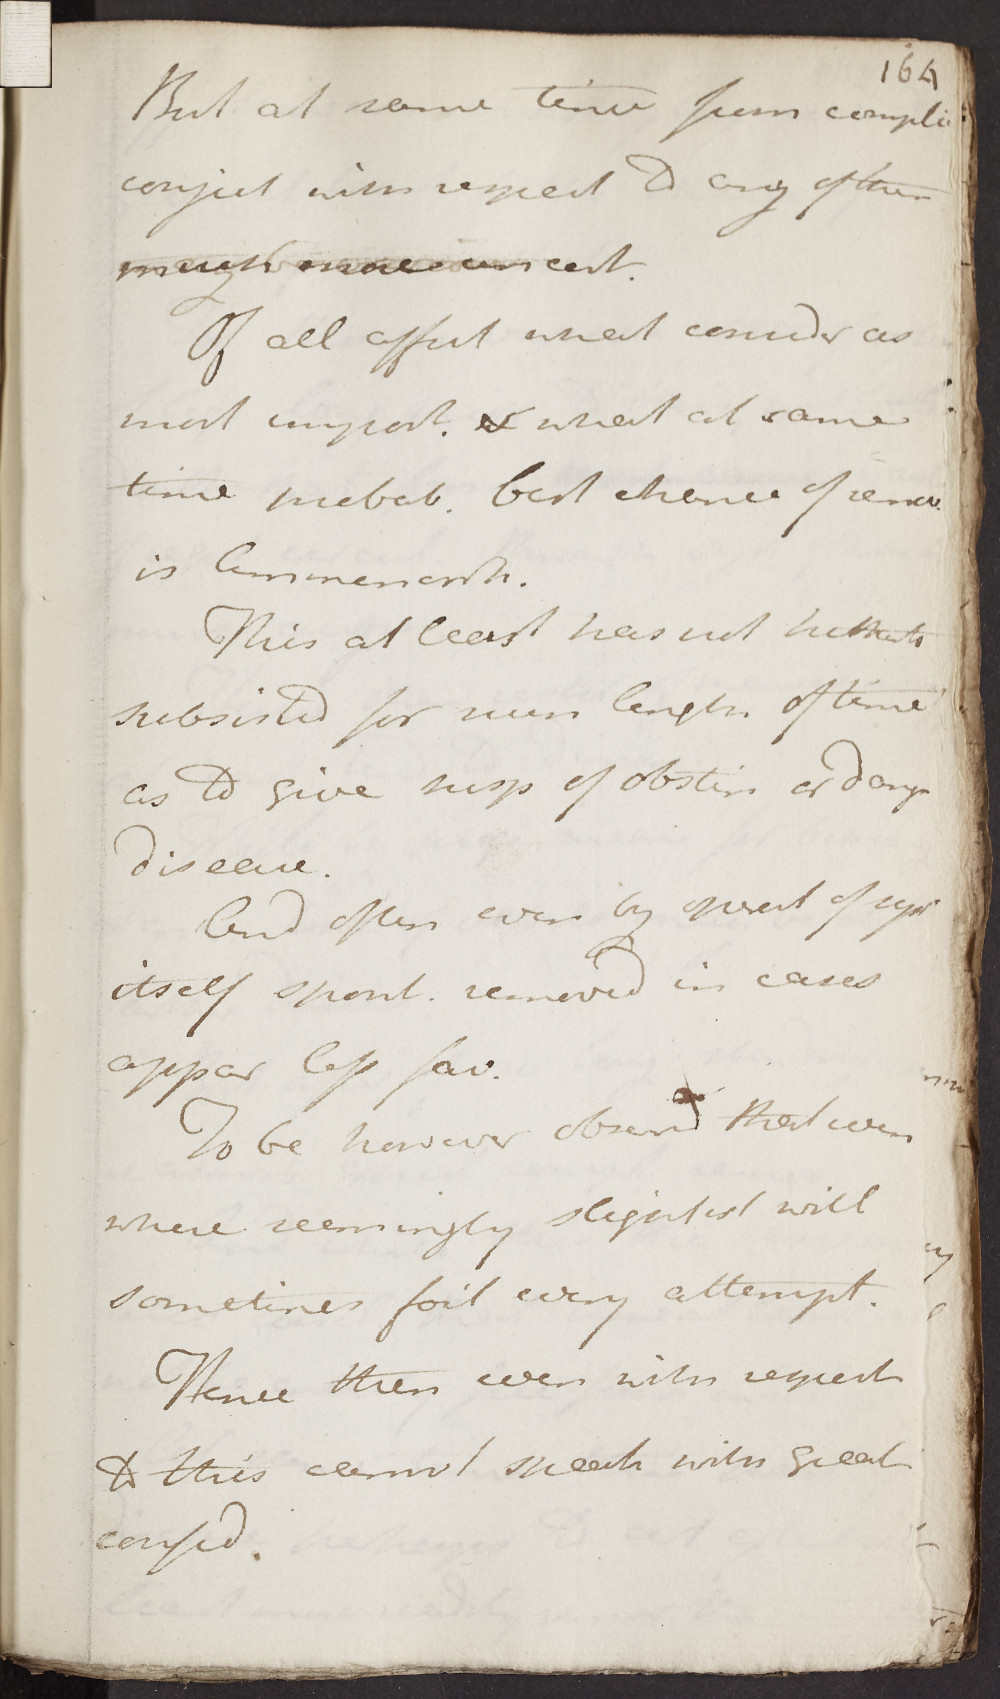 164
But at same time from compli
conject with respect to any of them
much more uncert.
Of all affect what consider as
most import. & what at same
time probab. best chance of remov.
is Ammenorrh.
This at least has not hitherto
subsisted for such length of time
as to give susp of obstin or dang
disease.
And often even by operat of syst
itself spont. removed in cases
appar less fav.
To be however observd that even
where seemingly slightest will
sometimes foil every attempt.
Hence then even with respect
to this cannot speak with great
confid.